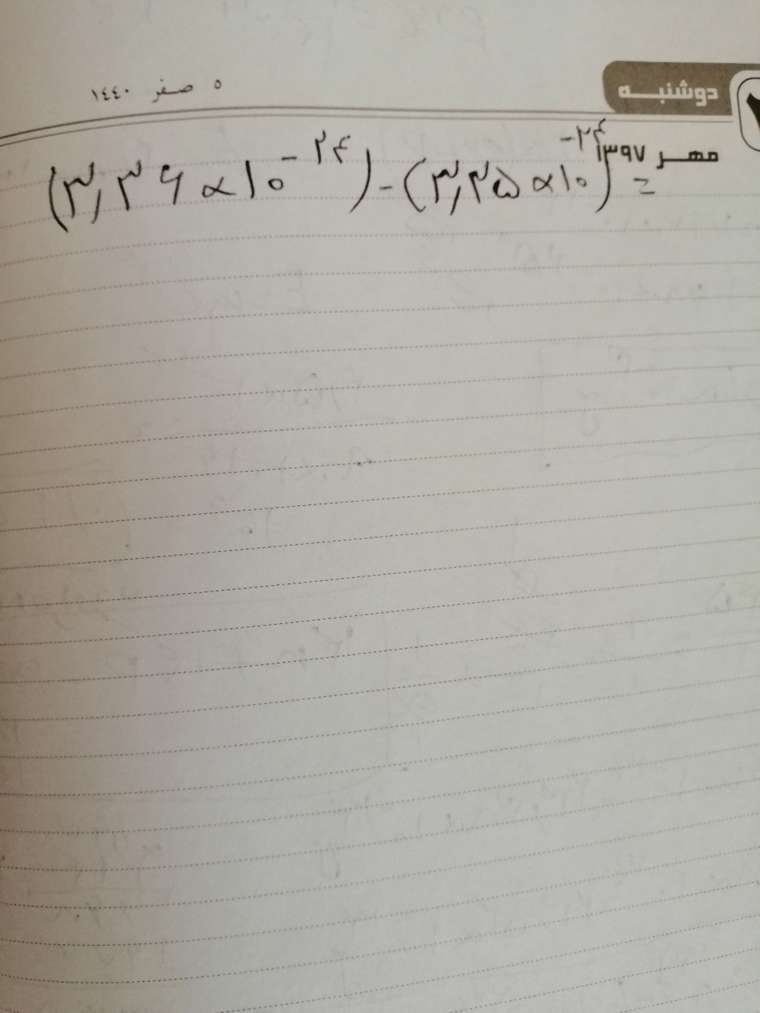 دوشنبه
۵ صفر ۱۴۴۰
مهر ۱۳۹۷
(۳,۳۶ × ۱۰^-۲۴) - (۳,۲۵ × ۱۰^-۲۴) =